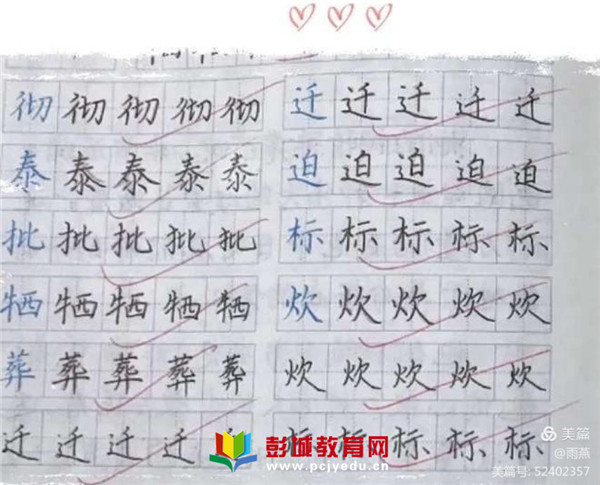 彻 彻 彻 彻 彻 迁 迁 迁 迁 迁
泰 泰 泰 泰 泰 迫 迫 迫 迫 迫
批 批 批 批 批 标 标 标 标 标
牺 牺 牺 牺 牺 炊 炊 炊 炊 炊
葬 葬 葬 葬 葬 炊 炊 炊 炊 炊
迁 迁 迁 迁 标 标 标
彭城教育网
www.pcjyedu.cn
美篇
@雨燕
美篇号: 52402357